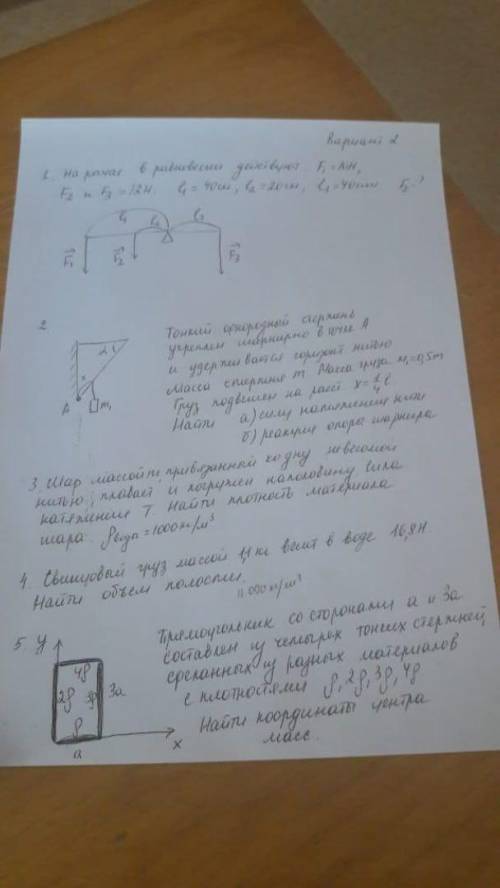 Вариант 2
1. На рычаг в равновесии действуют F₁ = H,
F₂ и F₃ = 12H. l₁ = 40см, l₂ = 20см, l₃ = 40см F₂ - ?
l₁ l₂ l₃
F₁ F₂ F₃
2
α l
x
A m₁
Тонкий однородный стержень
укреплен шарнирно в точке A
и удерживается горизонт нитью
Масса стержня m. Масса груза m₁ = 0,5m
Груз подвешен на расст x = 1/4 l.
Найти а) силу натяжения нити
б) реакцию опоры шарнира
3. Шар массой m, привязанной ко дну невесомой
нитью, плавает, и погружен наполовину. Сила
натяжения T. Найти плотность материала
шара. ρводы = 1000 кг/м³
4. Свинцовый груз массой кг весит в воде 16,8 Н.
Найти объем полости. 11 000 кг/м³
5. y
4ρ
2ρ 3ρ 3a
ρ
a x
Прямоугольник со сторонами a и 3a
составлен из четырех тонких стержней
сделанных из разных материалов
с плотностями ρ, 2ρ, 3ρ, 4ρ
Найти координаты центра
масс.